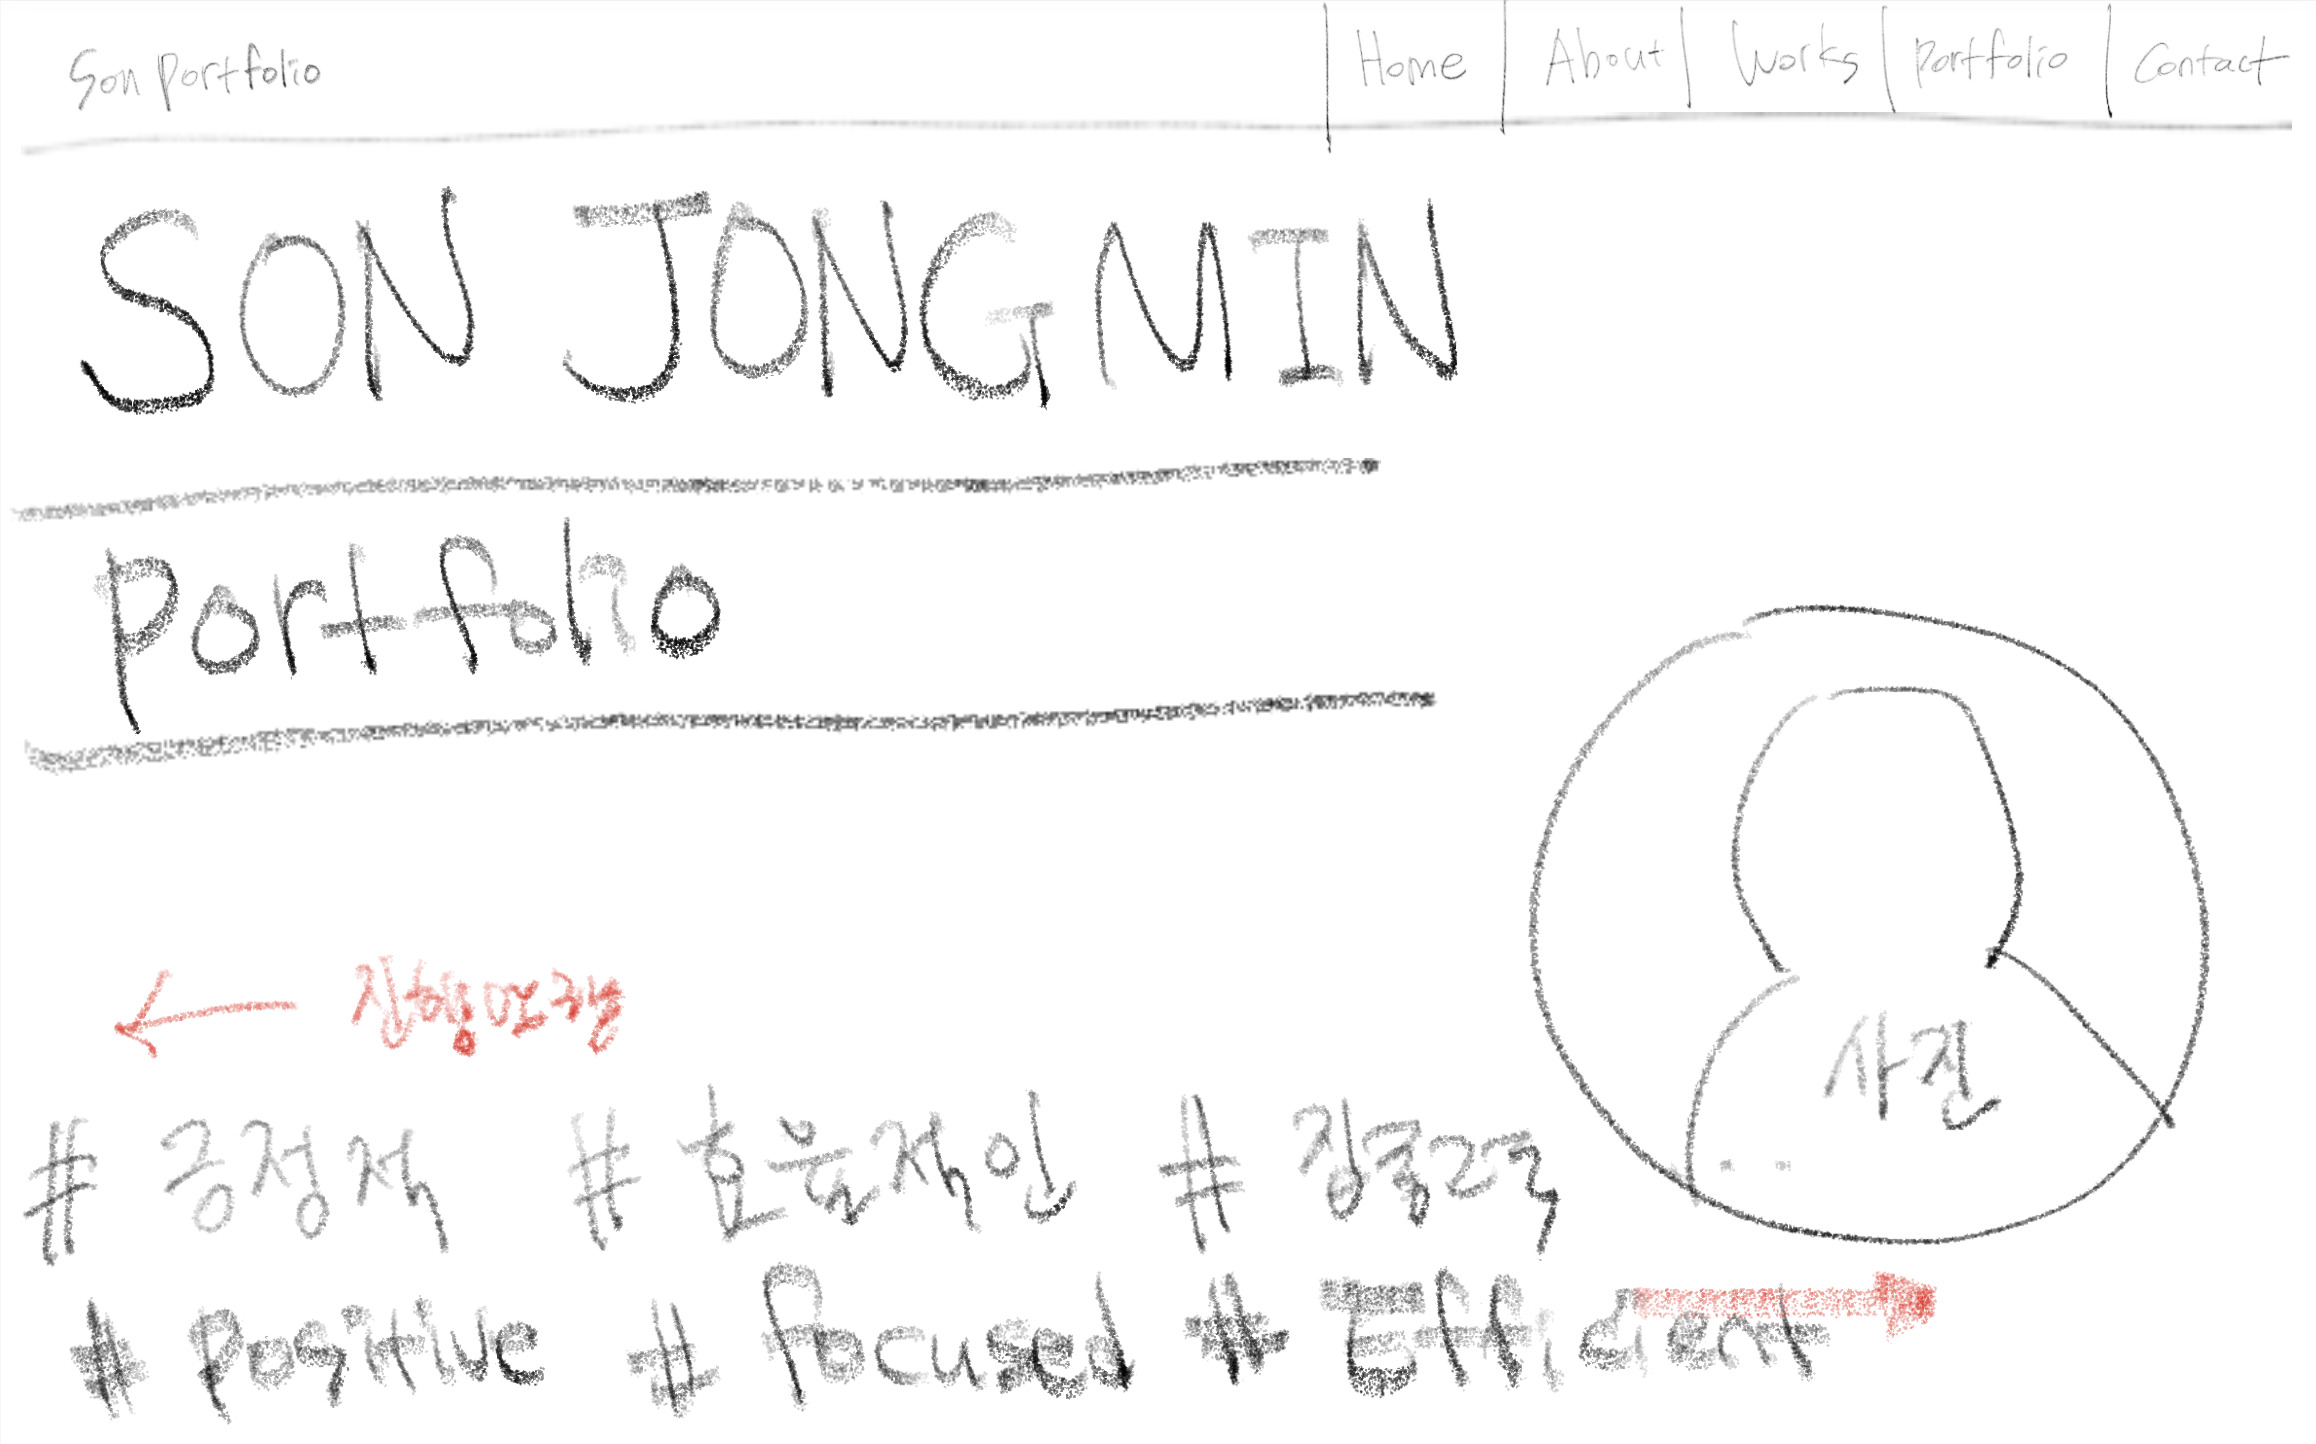 Son portfolio
Home About Works portfolio Contact
SON JONGMIN
portfolio
사진
# 긍정적 # 효율적인 # 집중력
# positive # focused # Efficient